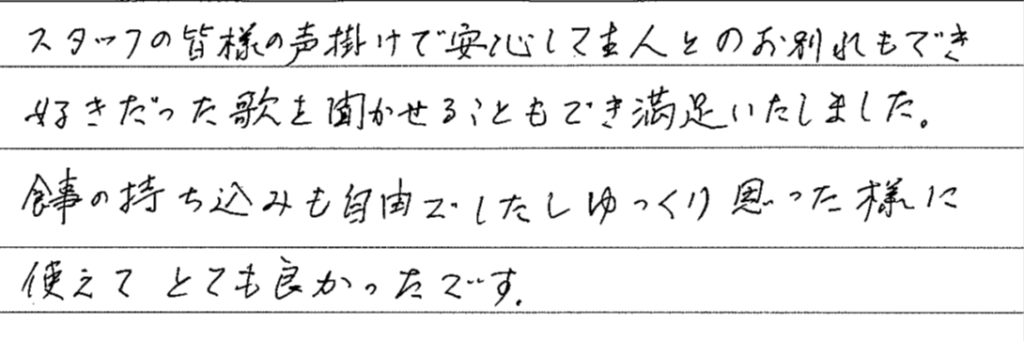 スタッフの皆様の声掛けで安心して主人とのお別れもでき
好きだった歌を聞かせることもでき満足いたしました。
食事の持ち込みも自由でしたしゆっくり思った様に
使えて とても良かったです。